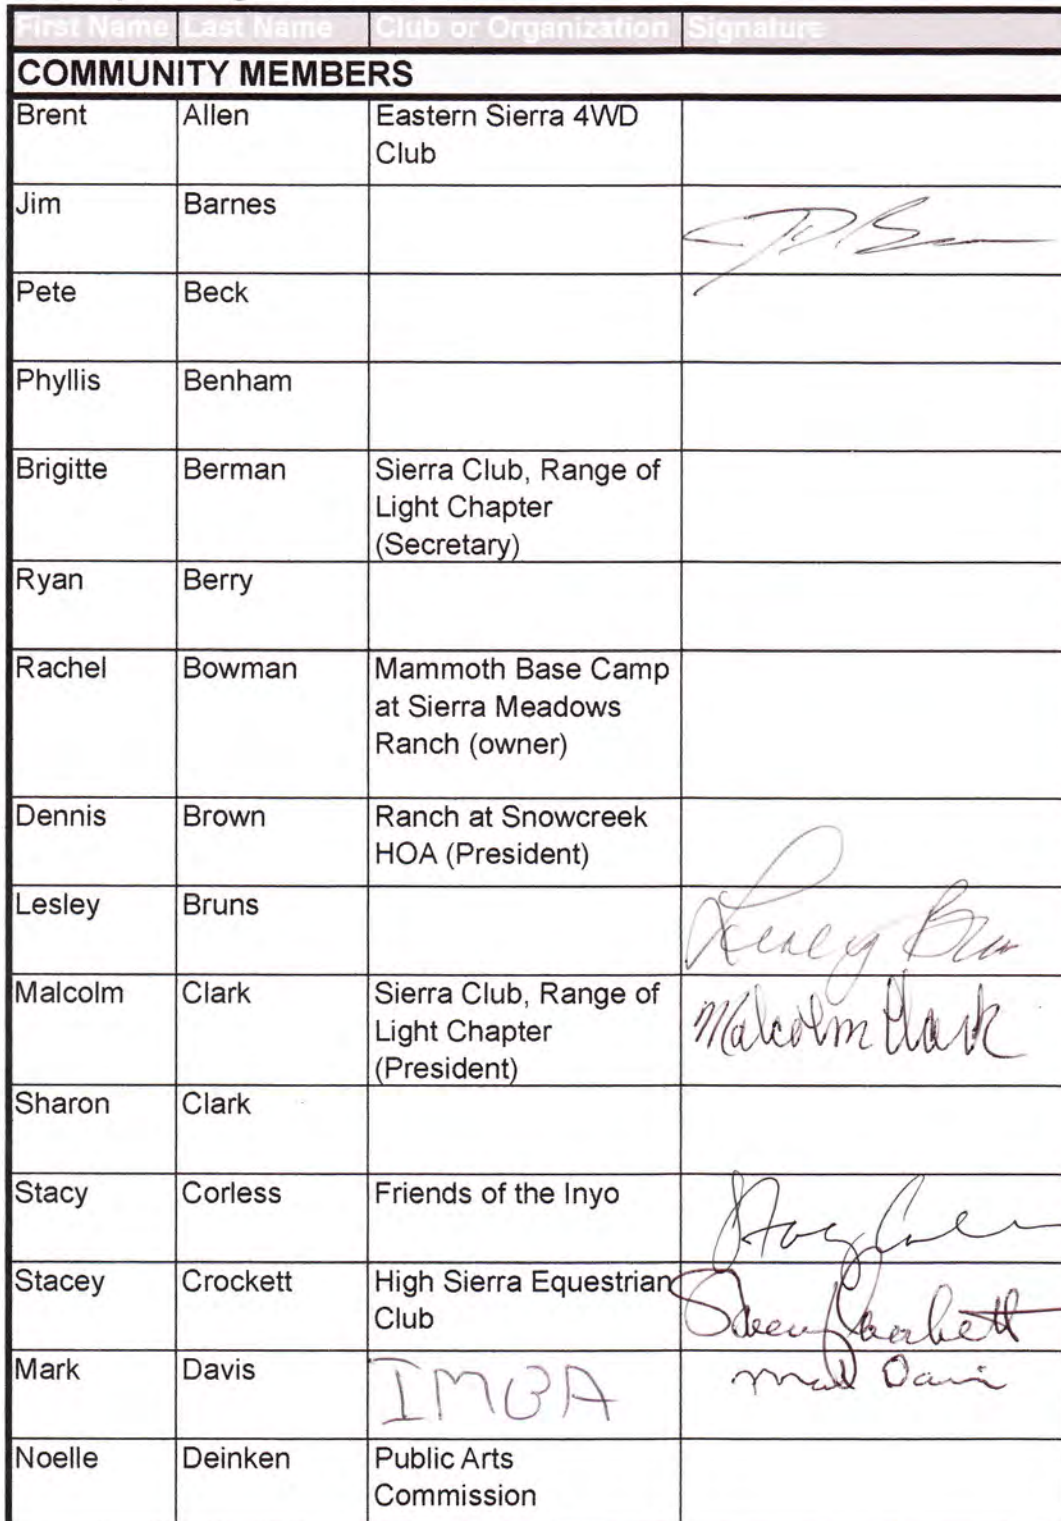 First Name Last Name Club or Organization Signature
COMMUNITY MEMBERS
Brent Allen Eastern Sierra 4WD
Club
Jim Barnes
Pete Beck
Phyllis Benham
Brigitte Berman Sierra Club, Range of
Light Chapter
(Secretary)
Ryan Berry
Rachel Bowman Mammoth Base Camp
at Sierra Meadows
Ranch (owner)
Dennis Brown Ranch at Snowcreek
HOA (President)
Lesley Bruns
Malcolm Clark Sierra Club, Range of Malcolm Clark
Light Chapter
(President)
Sharon Clark
Stacy Corless Friends of the Inyo
Stacey Crockett High Sierra Equestrian Stacey Crockett
Club
Mark Davis IMBA Mark Davis
Noelle Deinken Public Arts
Commission